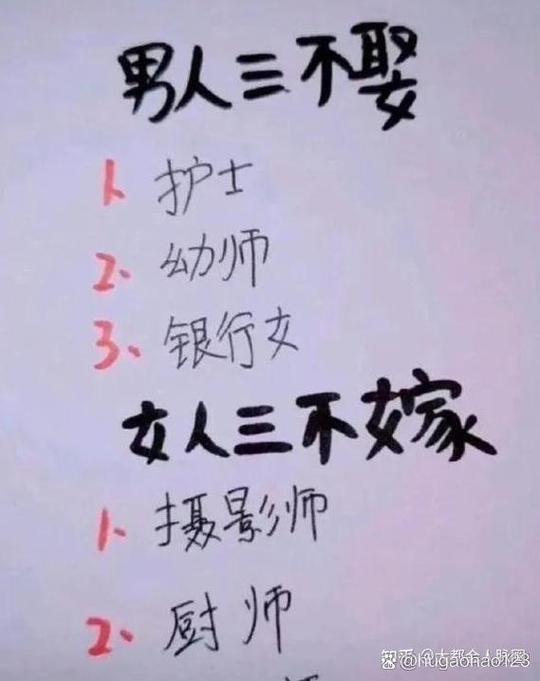 男人三不娶
1、护士
2、幼师
3、银行女
女人三不嫁
1、摄影师
2、厨师
知乎
@hugaohao123